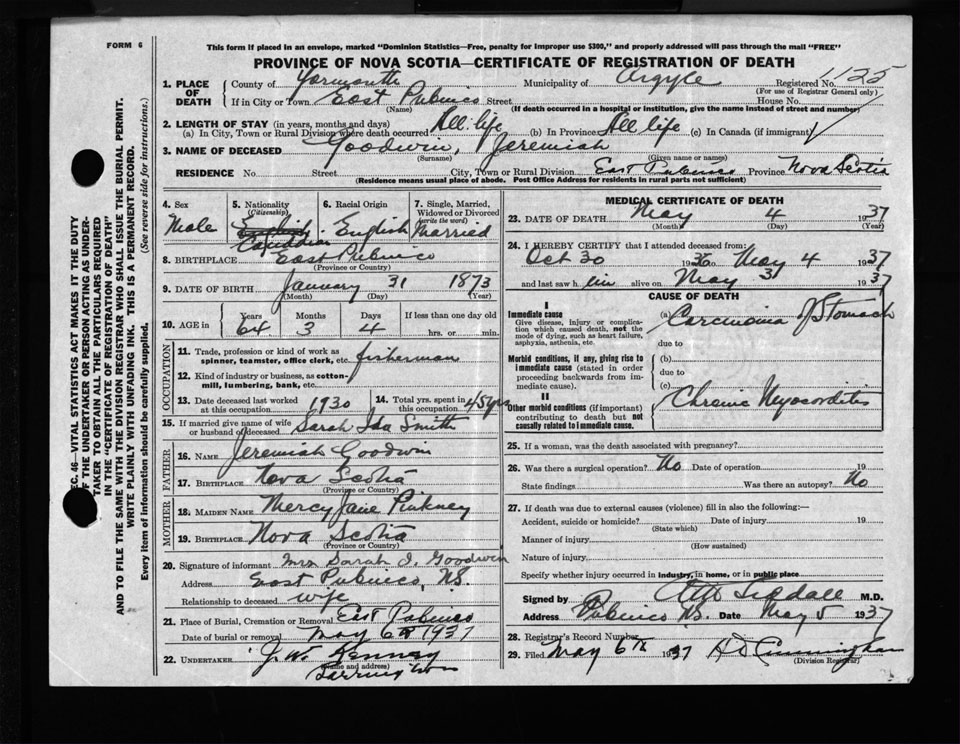 FORM 6
This form if placed in an envelope, marked "Dominion Statistics—Free, penalty for improper use $300," and properly addressed will pass through the mail "FREE"
PROVINCE OF NOVA SCOTIA—CERTIFICATE OF REGISTRATION OF DEATH
1. PLACE OF DEATH County of Yarmouth Municipality of Argyle Registered No. 1125
(For use of Registrar General only)
If in City or Town East Pubnico Street House No.
(Name) (If death occurred in a hospital or institution, give the name instead of street and number)
2. LENGTH OF STAY (in years, months and days)
(a) In City, Town or Rural Division where death occurred All life (b) In Province All life (c) In Canada (if immigrant)
3. NAME OF DECEASED Goodwin, Jeremiah
(Surname) (Given name or names)
RESIDENCE No. Street City, Town or Rural Division East Pubnico Province Nova Scotia
(Residence means usual place of abode. Post Office Address for residents in rural parts not sufficient)
4. Sex Male
5. Nationality (Citizenship) English Canadian
6. Racial Origin English
7. Single, Married, Widowed or Divorced (write the word) Married
8. BIRTHPLACE East Pubnico
(Province or Country)
9. DATE OF BIRTH January 31 1873
(Month) (Day) (Year)
10. AGE in Years Months Days If less than one day old
64 3 4 hrs. or min.
OCCUPATION
11. Trade, profession or kind of work as spinner, teamster, office clerk, etc. fisherman
12. Kind of industry or business, as cotton-mill, lumbering, bank, etc.
13. Date deceased last worked at this occupation 1930
14. Total yrs. spent in this occupation 45 yrs
15. If married give name of wife or husband of deceased Sarah Ida Smith
FATHER
16. NAME Jeremiah Goodwin
17. BIRTHPLACE Nova Scotia
(Province or Country)
MOTHER
18. MAIDEN NAME Mercy Jane Pinkney
19. BIRTHPLACE Nova Scotia
(Province or Country)
20. Signature of informant Mrs Sarah I. Goodwin
Address East Pubnico, N.S.
Relationship to deceased wife
21. Place of Burial, Cremation or Removal East Pubnico
Date of burial or removal May 6th 1937
22. UNDERTAKER J. W. Kenney
(Name and address)
Barrington
MEDICAL CERTIFICATE OF DEATH
23. DATE OF DEATH May 4 1937
(Month) (Day) (Year)
24. I HEREBY CERTIFY that I attended deceased from:
Oct 30 1936 to May 4 1937
and last saw him alive on May 3 1937
CAUSE OF DEATH
I
Immediate cause
Give disease, injury or complication which caused death, not the mode of dying, such as heart failure, asphyxia, asthenia, etc.
(a) Carcinoma of Stomach
due to
Morbid conditions, if any, giving rise to immediate cause (stated in order proceeding backwards from immediate cause).
(b)
due to
(c)
II
Other morbid conditions (if important) contributing to death but not causally related to immediate cause.
Chronic Myocarditis
25. If a woman, was the death associated with pregnancy?
26. Was there a surgical operation? No Date of operation 19
State findings Was there an autopsy? No
27. If death was due to external causes (violence) fill in also the following:—
Accident, suicide or homicide? Date of injury 19
(State which)
Manner of injury
(How sustained)
Nature of injury
Specify whether injury occurred in industry, in home, or in public place
Signed by Siddall M.D.
Address Pubnico N.S. Date May 5 1937
28. Registrar's Record Number
29. Filed May 6th 1937 H D Cunningham
(Division Registrar)
SEC. 46—VITAL STATISTICS ACT MAKES IT THE DUTY
OF THE UNDERTAKER OR PERSON ACTING AS UNDER-
TAKER TO OBTAIN ALL THE PARTICULARS REQUIRED
IN THE "CERTIFICATE OF REGISTRATION OF DEATH"
AND TO FILE THE SAME WITH THE DIVISION REGISTRAR WHO SHALL ISSUE THE BURIAL PERMIT.
WRITE PLAINLY WITH UNFADING INK. THIS IS A PERMANENT RECORD.
Every item of information should be carefully supplied. (See reverse side for instructions.)